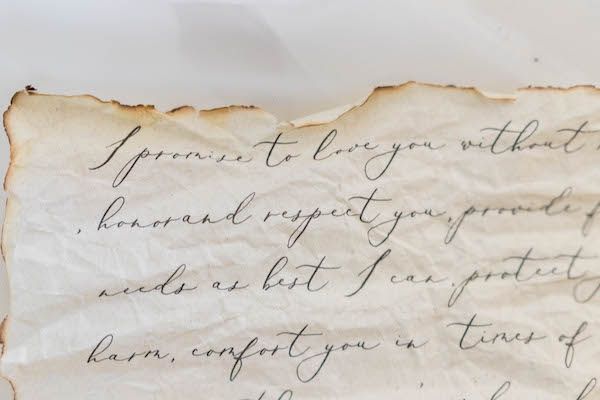 I promise to love you without
, honor and respect you, provide
needs as best I can, protect
harm, comfort you in times of